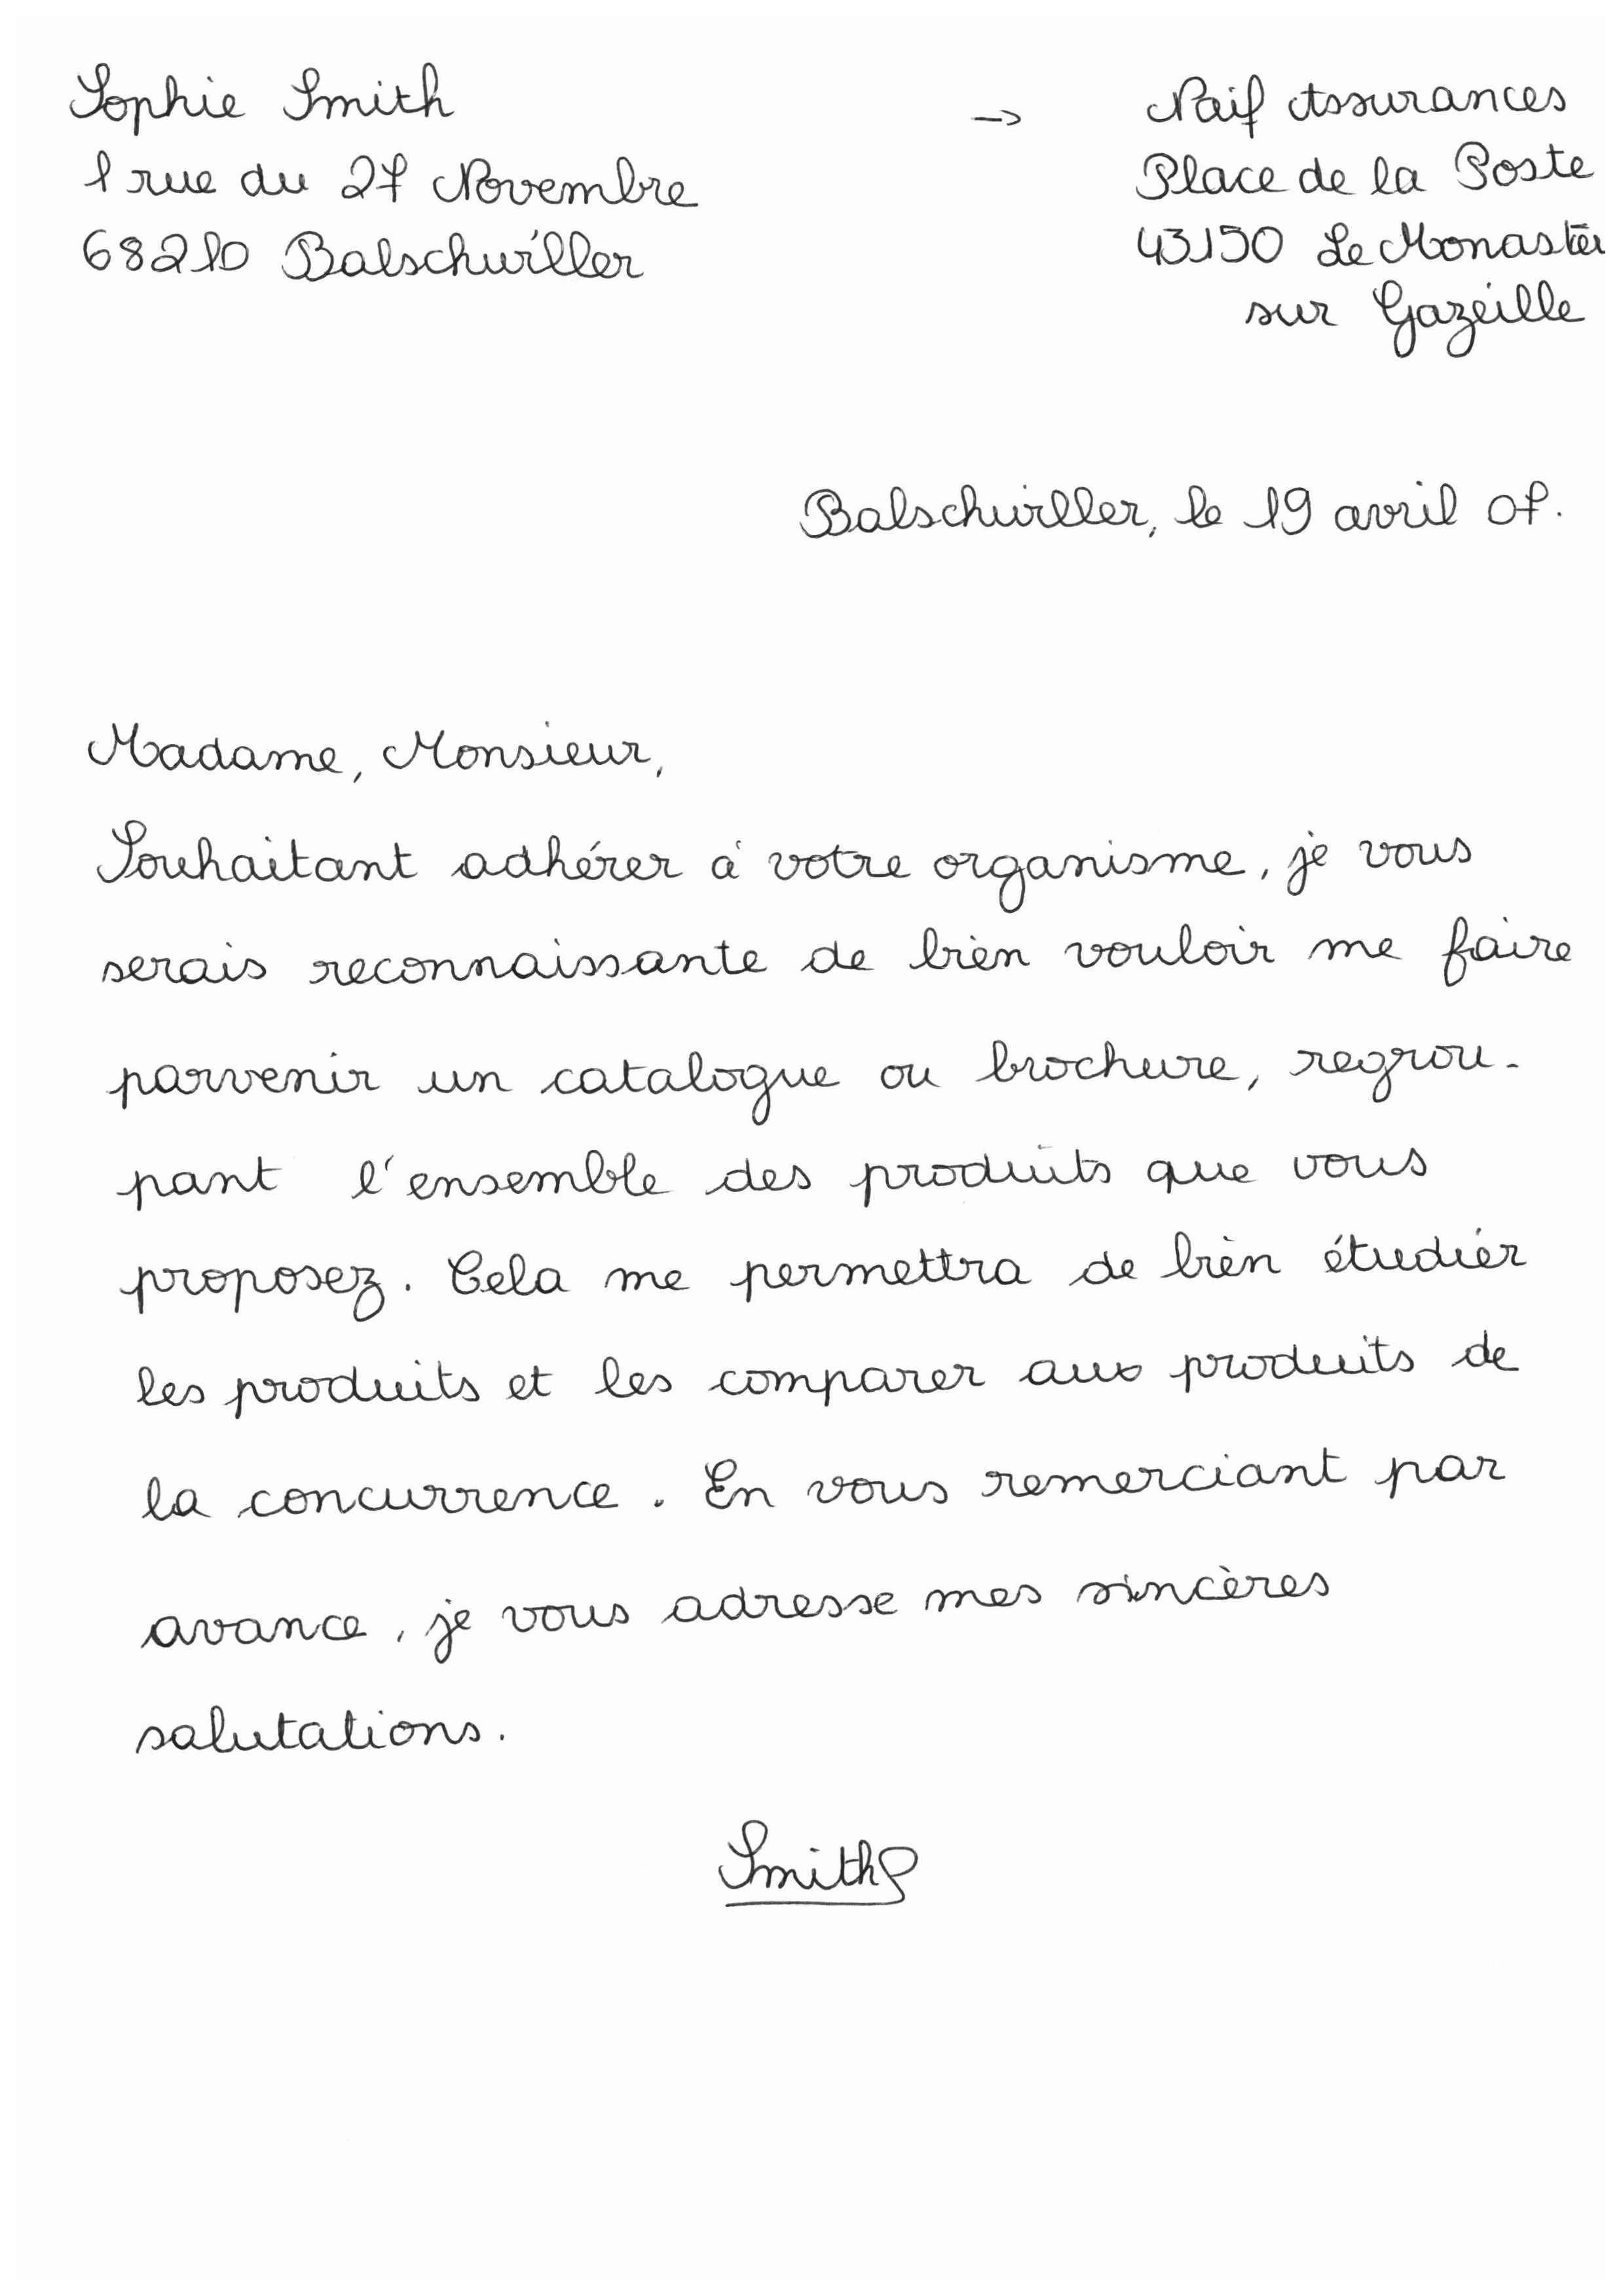 Sophie Smith
1 rue du 27 Novembre
68210 Balschwiller
→ Naif Assurances
Place de la Poste
43150 Le Monastèr
sur Gazeille
Balschwiller, le 19 avril 07.
Madame, Monsieur,
Souhaitant adhérer à votre organisme, je vous
serais reconnaissante de bien vouloir me faire
parvenir un catalogue ou brochure, regrou-
pant l'ensemble des produits que vous
proposez. Cela me permettra de bien étudier
les produits et les comparer aux produits de
la concurrence. En vous remerciant par
avance, je vous adresse mes sincères
salutations.
Smith